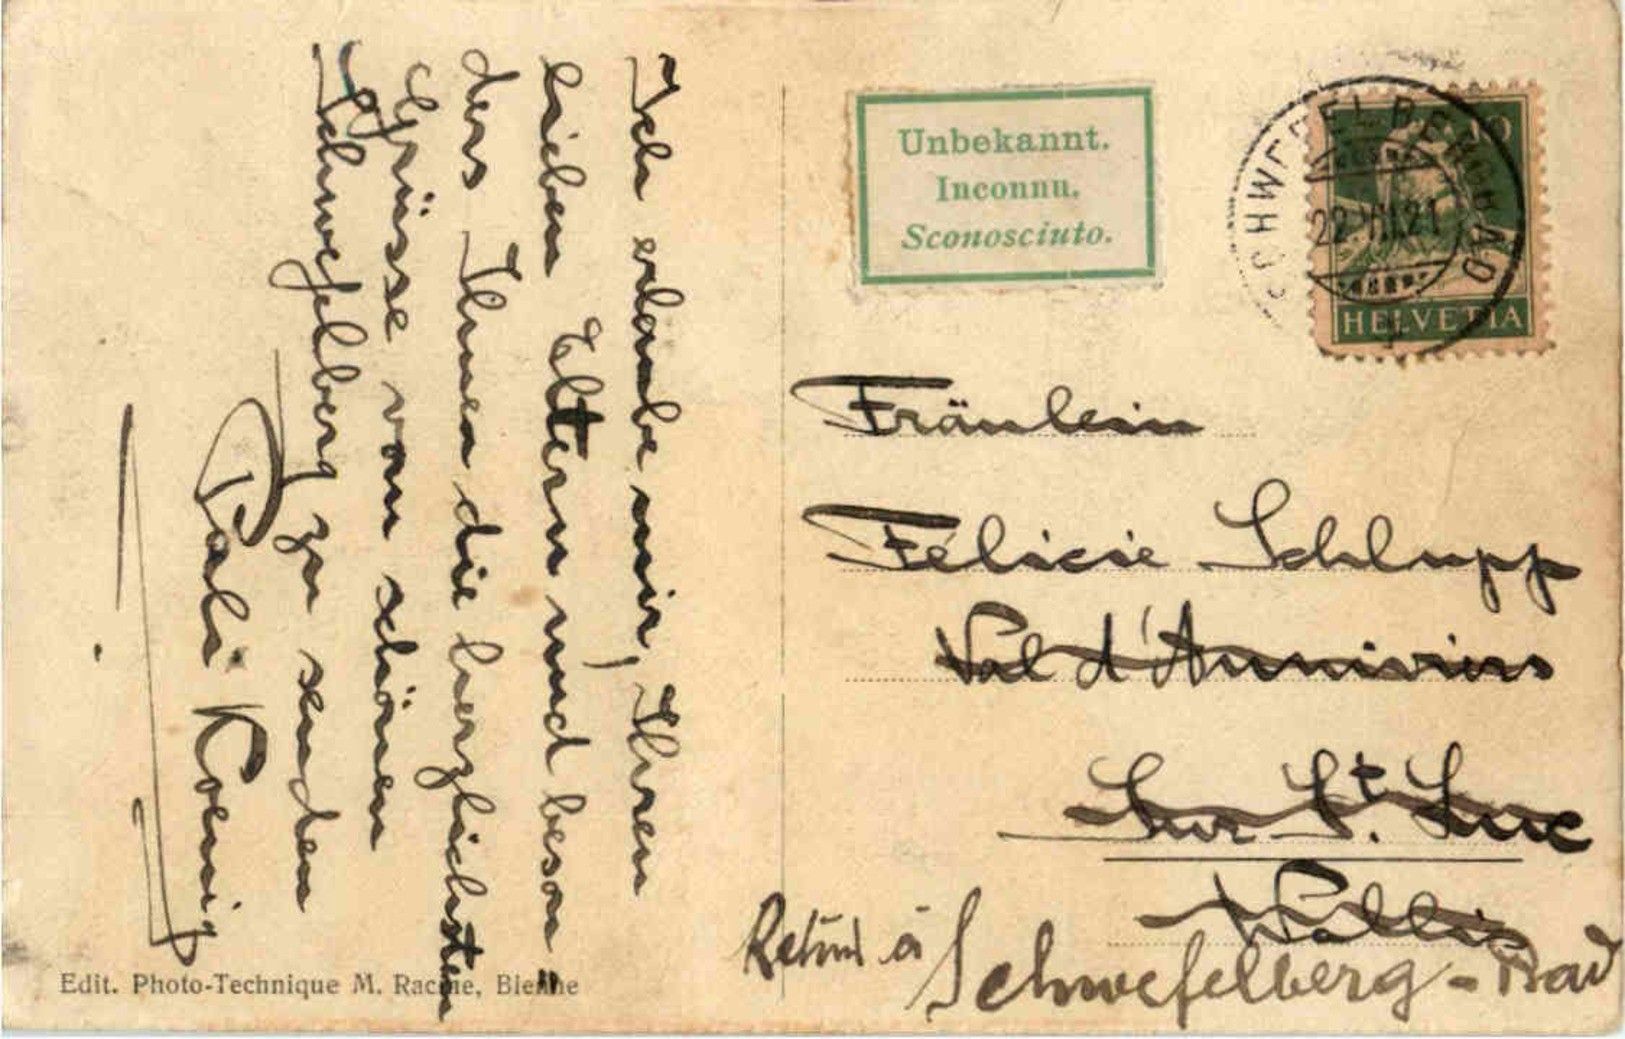 Ich erlaube mir, Ihren
lieben Eltern und beson
ders Ihnen die herzlichsten
Grüsse vom schönen
Schwefelberg zu senden
Koenig
Edit. Photo-Technique M. Racine, Bienne
Unbekannt.
Inconnu.
Sconosciuto.
SCHWEFELBERG BAD
22.VII.21
10
HELVETIA
Fräulein
Félicie Schlupp
Val d'Anniviers
Sur St. Luc
Wallis
Retour à Schwefelberg-Bad